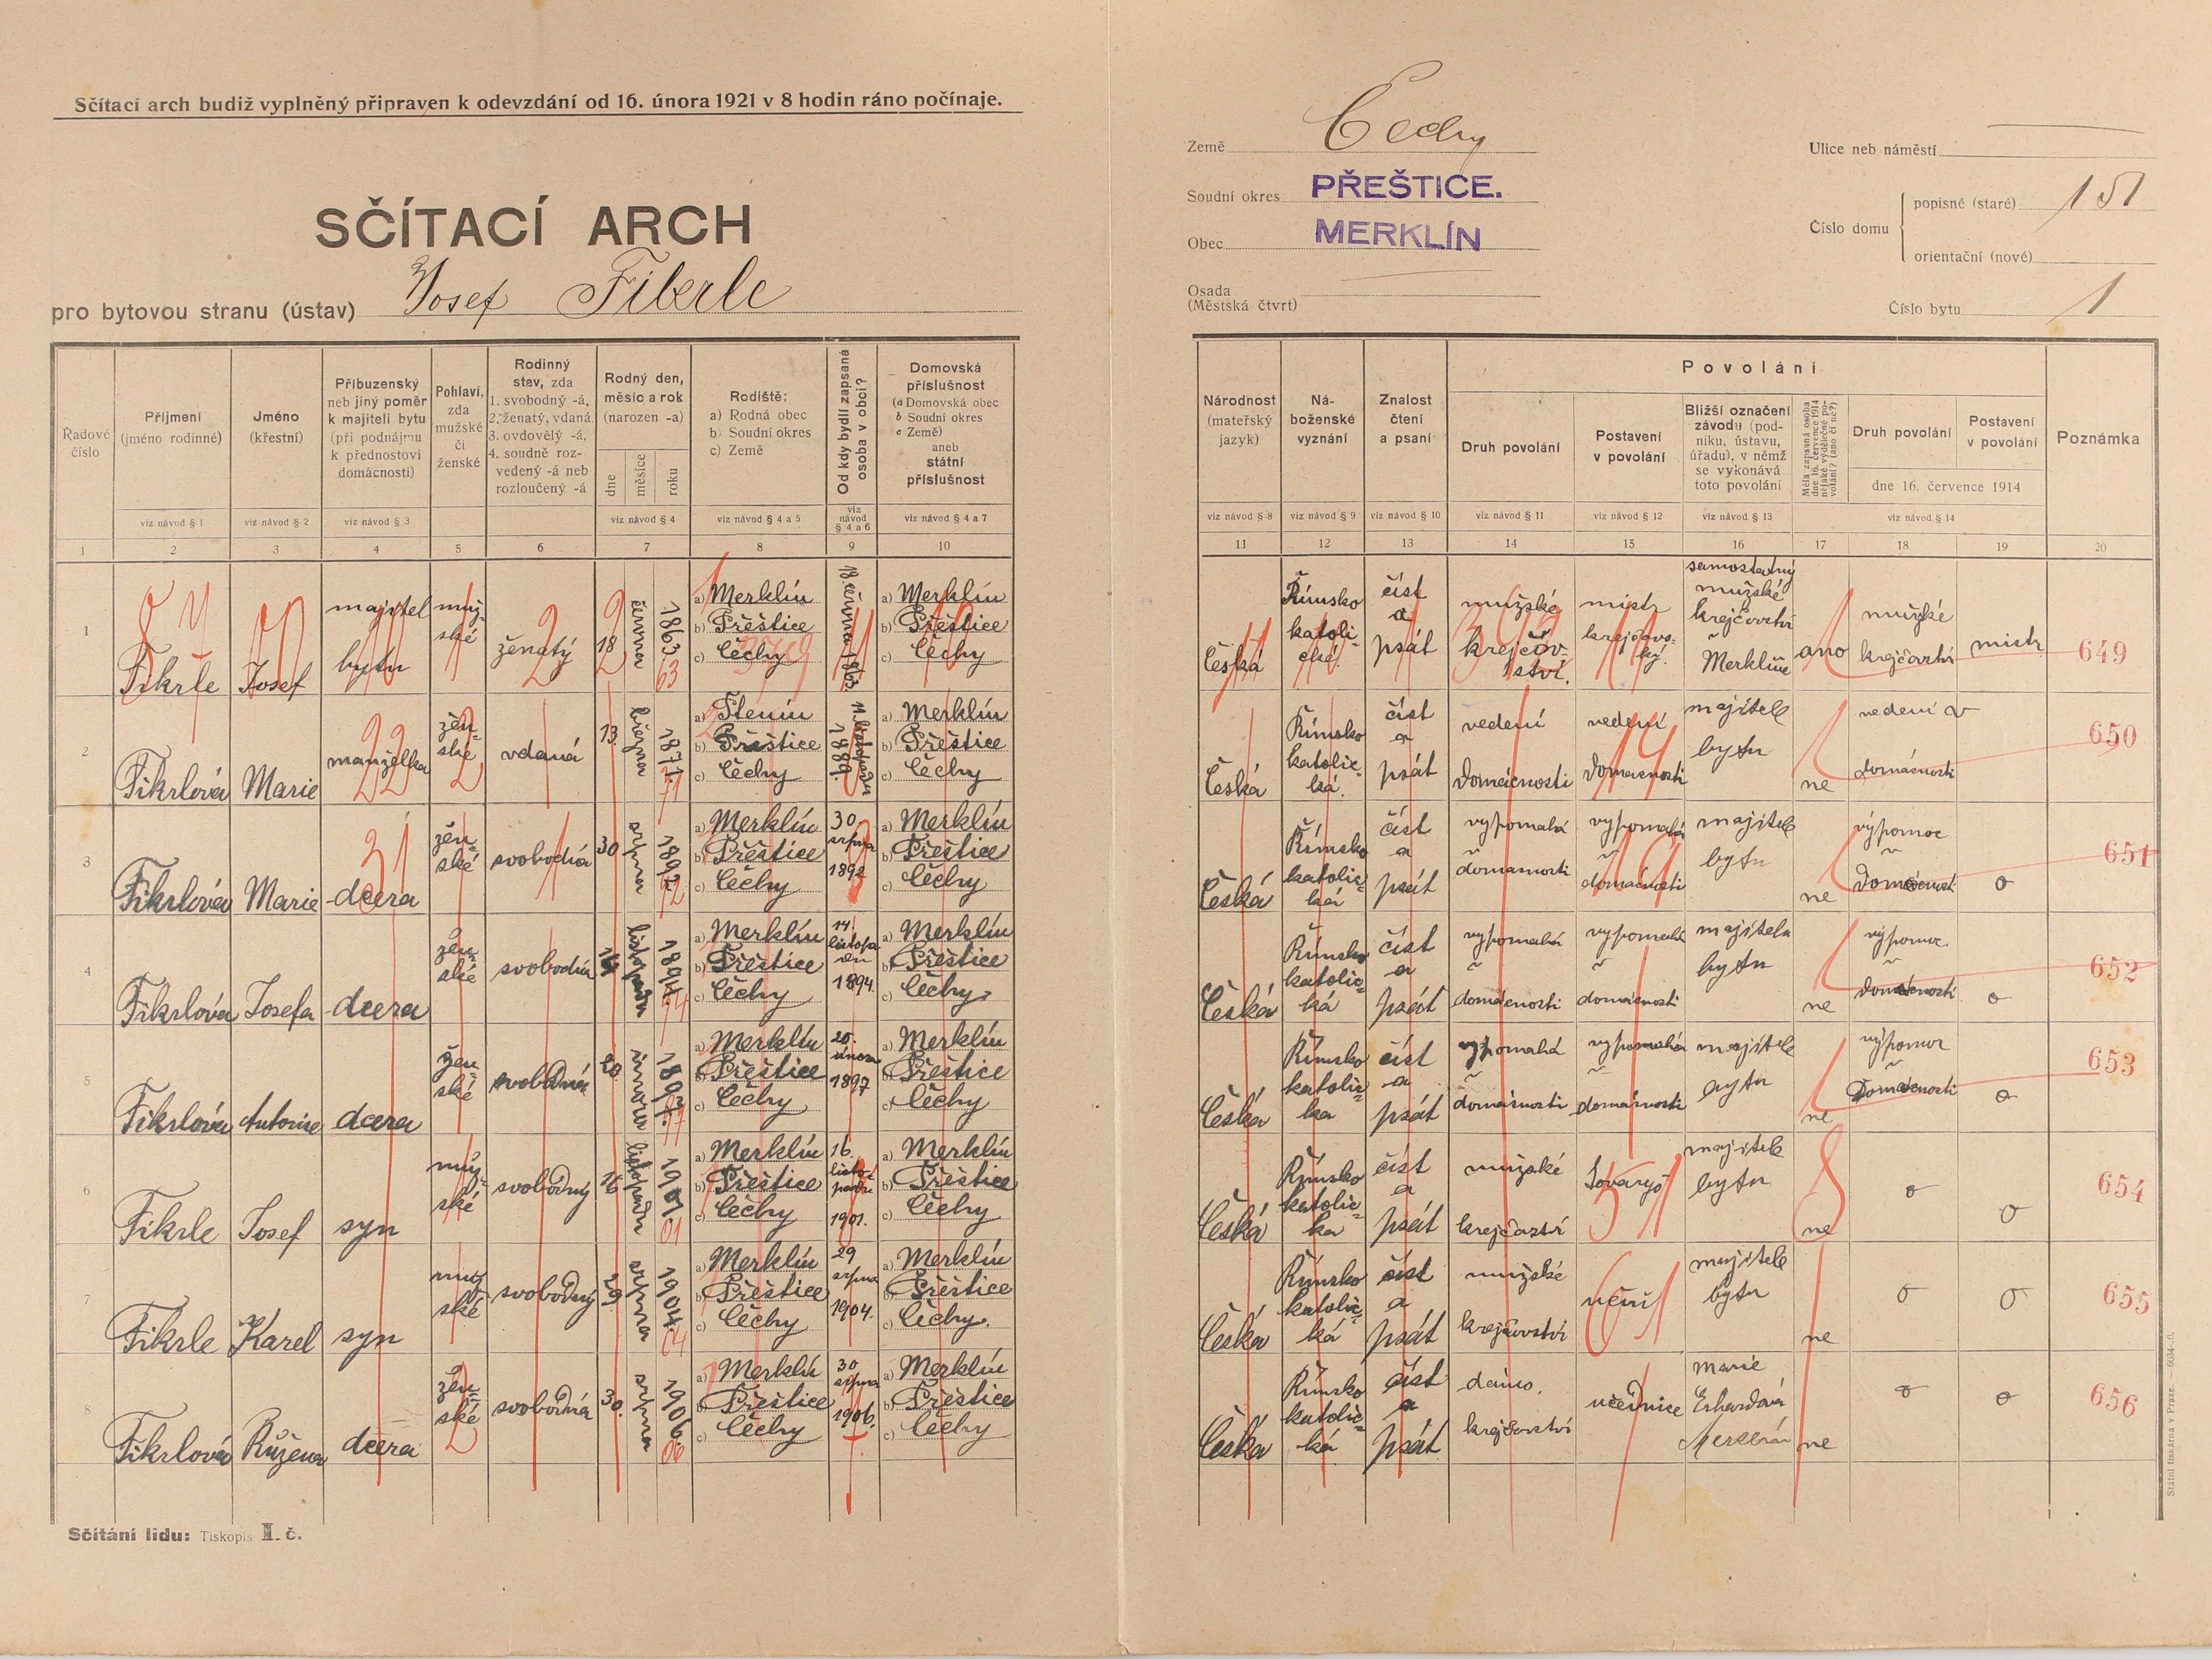 Sčítací arch budiž vyplněný připraven k odevzdání od 16. února 1921 v 8 hodin ráno počínaje.
SČÍTACÍ ARCH
pro bytovou stranu (ústav) Josef Fikrle
Země Čechy
Soudní okres PŘEŠTICE.
Obec MERKLÍN
Osada
(Městská čtvrt)
Ulice neb náměstí
Číslo domu
popisné (staré) 151
orientační (nové)
Číslo bytu 1
Řadové číslo
Příjmení (jméno rodinné)
Jméno (křestní)
Příbuzenský neb jiný poměr k majiteli bytu (při podnájmu k přednostovi domácnosti)
Pohlaví, zda mužské či ženské
Rodinný stav, zda 1. svobodný -á, 2. ženatý, vdaná 3. ovdovělý -á, 4. soudně rozvedený -á neb rozloučený -á
Rodný den, měsíc a rok (narozen -a)
dne měsíce roku
Rodiště: a) Rodná obec b) Soudní okres c) Země
Od kdy bydlí zapsaná osoba v obci?
Domovská příslušnost (a Domovská obec b Soudní okres c Země) aneb státní příslušnost
viz návod § 1 viz návod § 2 viz návod § 3 viz návod § 4 viz návod § 4 a 5 viz návod § 4 a 6 viz návod § 4 a 7
1 2 3 4 5 6 7 8 9 10
Národnost (mateřský jazyk)
Náboženské vyznání
Znalost čtení a psaní
Povolání
Druh povolání
Postavení v povolání
Bližší označení závodu (podniku, ústavu, úřadu), v němž se vykonává toto povolání
Měla zapsaná osoba dne 16. července 1914 nějaké výdělečné povolání? (ano či ne?)
Druh povolání
Postavení v povolání
dne 16. července 1914
Poznámka
viz návod § 8 viz návod § 9 viz návod § 10 viz návod § 11 viz návod § 12 viz návod § 13 viz návod § 14
11 12 13 14 15 16 17 18 19 20
1 Fikrle Josef majitel bytu mužské ženatý 18 června 1863 63 a) Merklín b) Přeštice c) Čechy 18. června 1863. a) Merklín b) Přeštice c) Čechy
Česká Římsko katolické. číst a psát mužské krejčovství. mistr krejčovský. samostatný mužské krejčovství Merklín ano mužské krejčovství mistr 649
2 Fikrlová Marie manželka ženské vdaná 13. března 1871. 71 a) Ptenín b) Přeštice c) Čechy 11. listopadu 1889. a) Merklín b) Přeštice c) Čechy
Česká Římsko katolická. číst a psát vedení domácnosti vedení domácnosti majitele bytu ne vedení v domácnosti 650
3 Fikrlová Marie dcera ženské svobodná 30 srpna 1892 92 a) Merklín b) Přeštice c) Čechy 30 srpna 1892 a) Merklín b) Přeštice c) Čechy
Česká Římsko katolická číst a psát vypomahá v domácnosti vypomahá v domácnosti majitele bytu ne výpomoc v domácnosti o 651
4 Fikrlová Josefa dcera ženské svobodná 14 listopadu 1894 94 a) Merklín b) Přeštice c) Čechy 14. listopadu 1894. a) Merklín b) Přeštice c) Čechy
Česká Římsko katolická číst a psát vypomahá v domácnosti vypomahá v domácnosti majitele bytu ne výpomoc v domácnosti o 652
5 Fikrlová Antonie dcera ženské svobodná 20. února 1897. 97 a) Merklín b) Přeštice c) Čechy 20. února 1897 a) Merklín b) Přeštice c) Čechy
Česká Římsko katolicka číst a psát vypomahá v domácnosti vypomahá v domácnosti majitele bytu ne výpomoc v domácnosti o 653
6 Fikrle Josef syn mužské svobodný 16 listopadu 1901 01 a) Merklín b) Přeštice c) Čechy 16. listopadu 1901. a) Merklín b) Přeštice c) Čechy
Česká Římsko katolicka číst a psát mužské krejčovství tovaryš majitele bytu ne o o 654
7 Fikrle Karel syn mužské svobodný 29. srpna 1904. 04 a) Merklín b) Přeštice c) Čechy 29 srpna 1904. a) Merklín b) Přeštice c) Čechy.
Česká Římsko katolická číst a psát mužské krejčovství učeň majitele bytu ne o o 655
8 Fikrlová Růžena dcera ženské svobodná 30. srpna 1906 06 a) Merklín b) Přeštice c) Čechy 30 srpna 1906. a) Merklín b) Přeštice c) Čechy
Česká Římsko katolická číst a psát dams. krejčovství učednice Marie Erhardová Merklín ne o o 656
Sčítání lidu: Tiskopis I. č.
Státní tiskárna v Praze. — 6634-0.